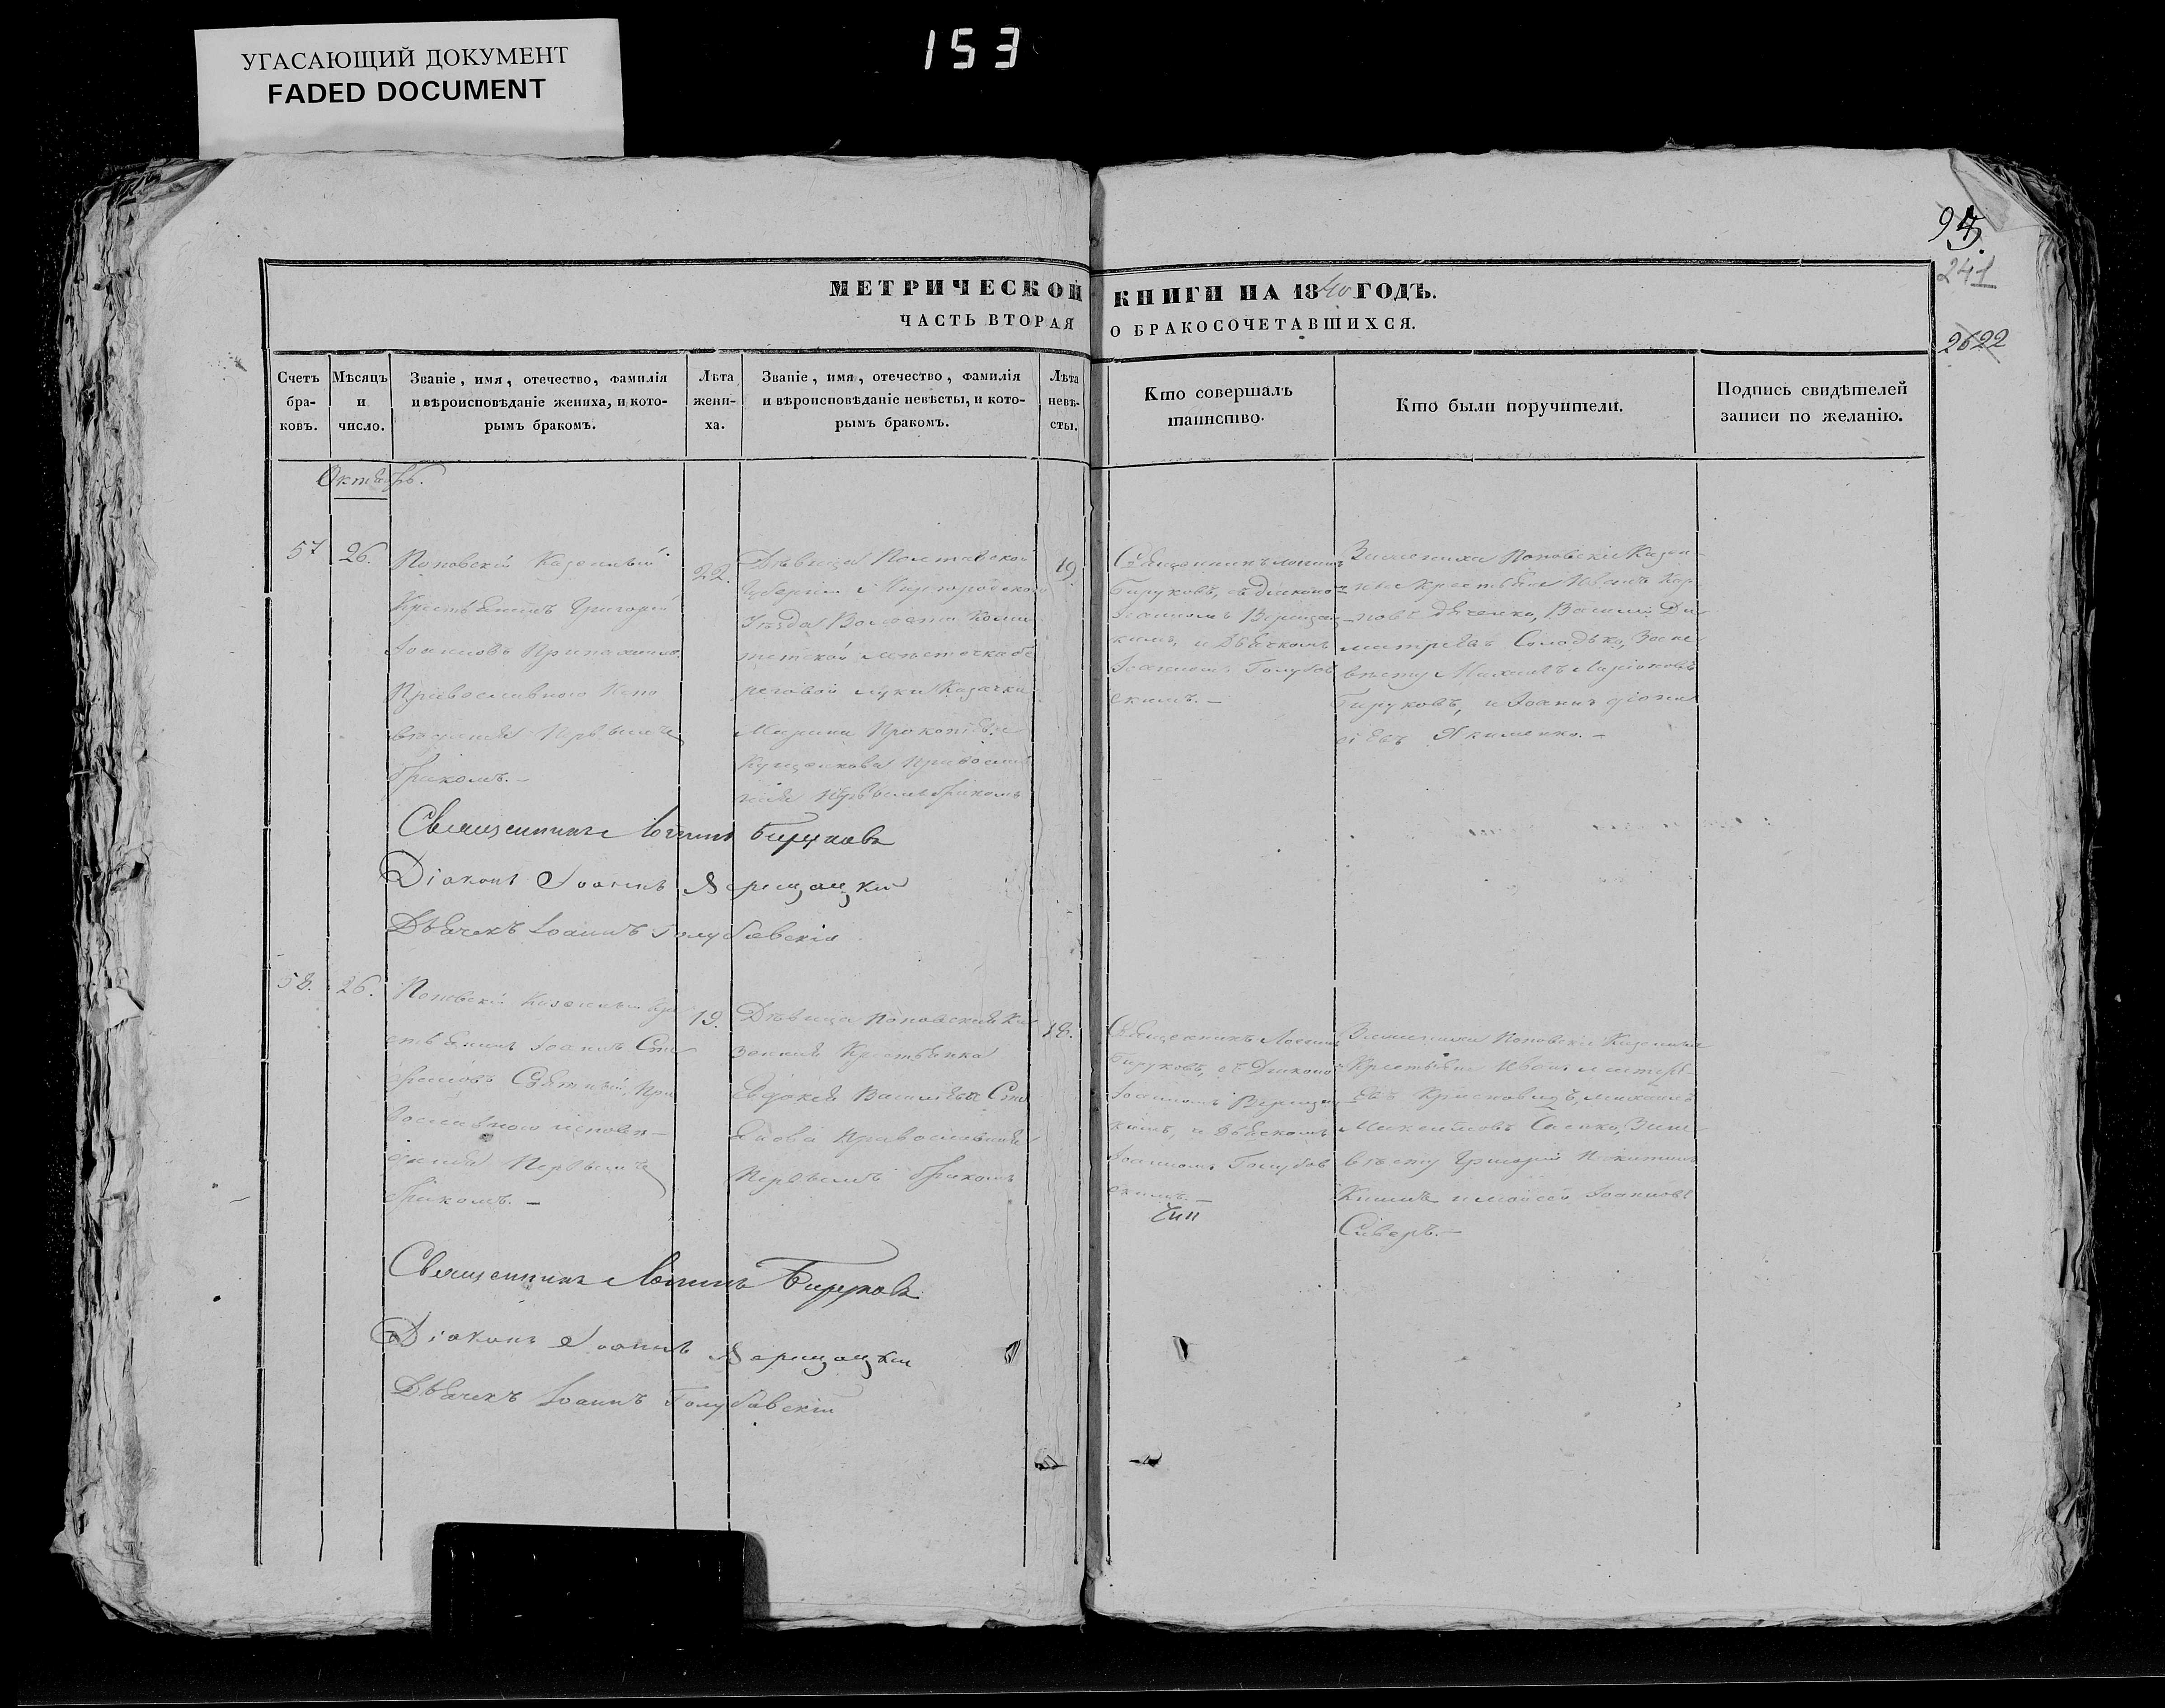 УГАСАЮЩИЙ ДОКУМЕНТ
FADED DOCUMENT
153
95.
241
2622
МЕТРИЧЕСКОЙ КНИГИ НА 1840 ГОДЪ.
ЧАСТЬ ВТОРАЯ О БРАКОСОЧЕТАВШИХСЯ.
Счетъ бра-ковъ.
Мѣсяцъ и число.
Званіе, имя, отечество, фамилія
и вѣроисповѣданіе жениха, и кото-
рымъ бракомъ.
Лѣта жени-ха.
Званіе, имя, отечество, фамилія
и вѣроисповѣданіе невѣсты, и кото-
рымъ бракомъ.
Лѣта невѣ-сты.
Кто совершалъ
таинство.
Кто были поручители.
Подпись свидѣтелей
записи по желанію.
Октябрь.
57
26.
Поповскій Казенный
Крестьянинъ Григорій
Іоанновъ
Православнаго Испо
вѣданія Первымъ
бракомъ.
22.
Дѣвица Полтавской
Губерніи Миргородскаго
Уѣзда Волости Коми
реговой луки Казачка
Марина Прокопьева
Православ
ная Первымъ бракомъ
19.
Священникъ Логинъ
Бируковъ, съ Діакономъ
Іоанномъ Верещац
кимъ, и Дьячкомъ
Іоанномъ Голубов
скимъ.
За жениха Поповскіе Казен-
ные Крестьяне Иванъ Кар
повъ Дяченко, Василій Ди
митріевъ Солодько, За не
вѣсту Михаилъ Ларіоновъ
Бируковъ, и Іоаннъ Діони
сіевъ Якименко.
Священникъ Логинъ Бируковъ
Діаконъ Іоаннъ Верещацкій
Дьячекъ Іоаннъ Голубовскій
58.
26.
Поповскій Казенный Кре
стьянинъ Іоаннъ Сте
фановъ Пра
вославнаго исповѣ
данія Первымъ
бракомъ.
19.
Дѣвица Поповская Ка
зенная Крестьянка
Евдокія Васильева Сто
янова Православная
Первымъ бракомъ
18.
Священникъ Логинъ
Бируковъ, съ Діакономъ
Іоанномъ Верещац
кимъ, и Дьячкомъ
Іоанномъ Голубов
скимъ.
За жениха Поповскіе Казенные
Крестьяне Иванъ
Михаилъ
Максимовъ Саенко, За не
вѣсту Григорій Никитинъ
и Моисей Іоанновъ
Сиверъ.
Священникъ Логинъ Бируковъ
Діаконъ Іоаннъ Верещацкій
Дьячекъ Іоаннъ Голубовскій